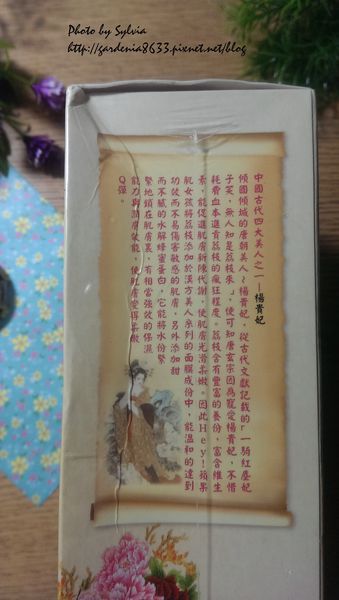 Photo by Sylvia
http://gardenia8633.pixnet.net/blog
中國古代四大美人之一—楊貴妃
傾國傾城的唐朝美人~楊貴妃，從古代文獻記載的「一騎紅塵妃
子笑，無人知是荔枝來」，便可知唐玄宗因為寵愛楊貴妃，不惜
耗費血本進貢荔枝的瘋狂程度。荔枝含有豐富的養份，富含維生
素，能促進肌膚新陳代謝，使肌膚光滑柔嫩。因此Hey!蘋果
肌女孩將荔枝添加於漢方美人系列的面膜成份中，能溫和的達到
功效而不易傷害敏感的肌膚，另外添加甜
而不膩的水解蜂蜜蛋白，它能將水份緊
緊地鎖在肌膚裏，有相當強效的保濕
能力與潤膚效能，使肌膚變得柔嫩
Q彈。